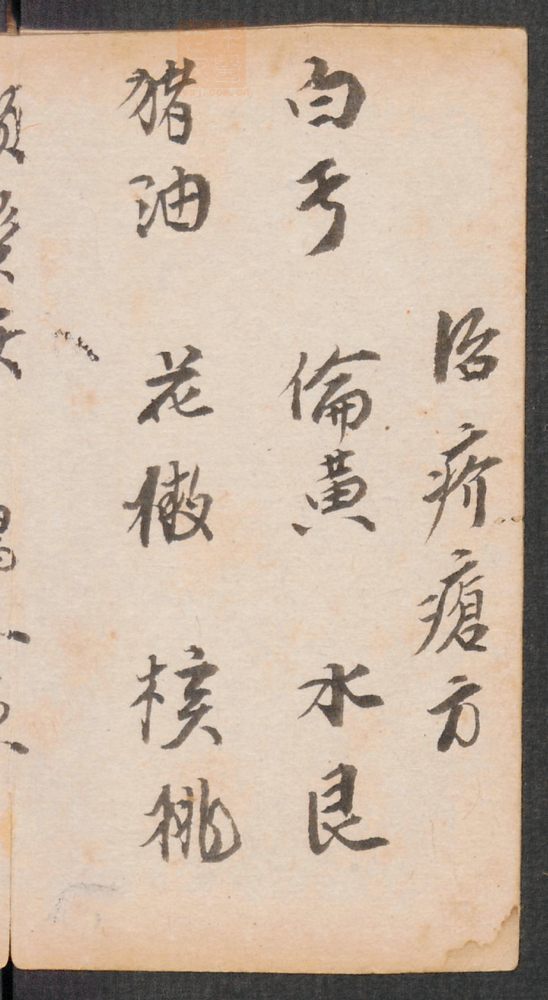 治疥瘡方
白芍 倫黄 水艮
猪油 花椒 核桃